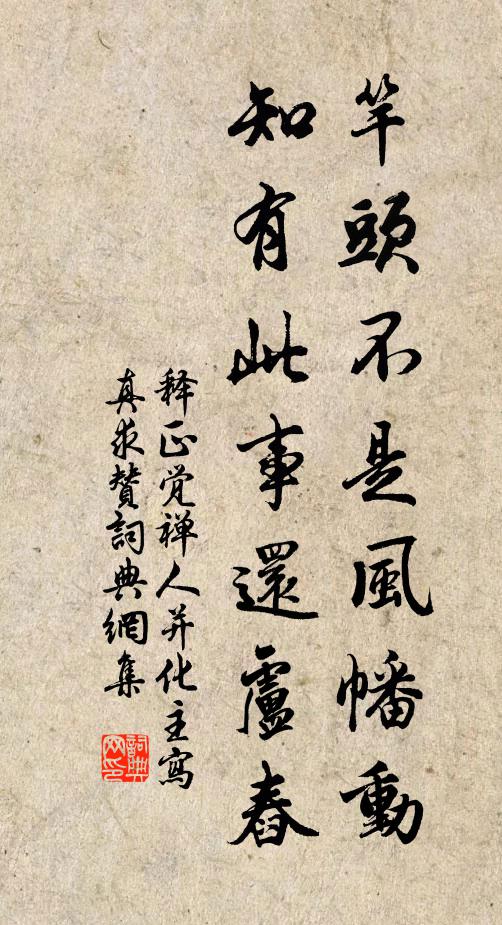 竿頭不是風幡動
知有此事還盧舂
释正觉禅人并化主寫
真求贊詞典網集
詞典
网印